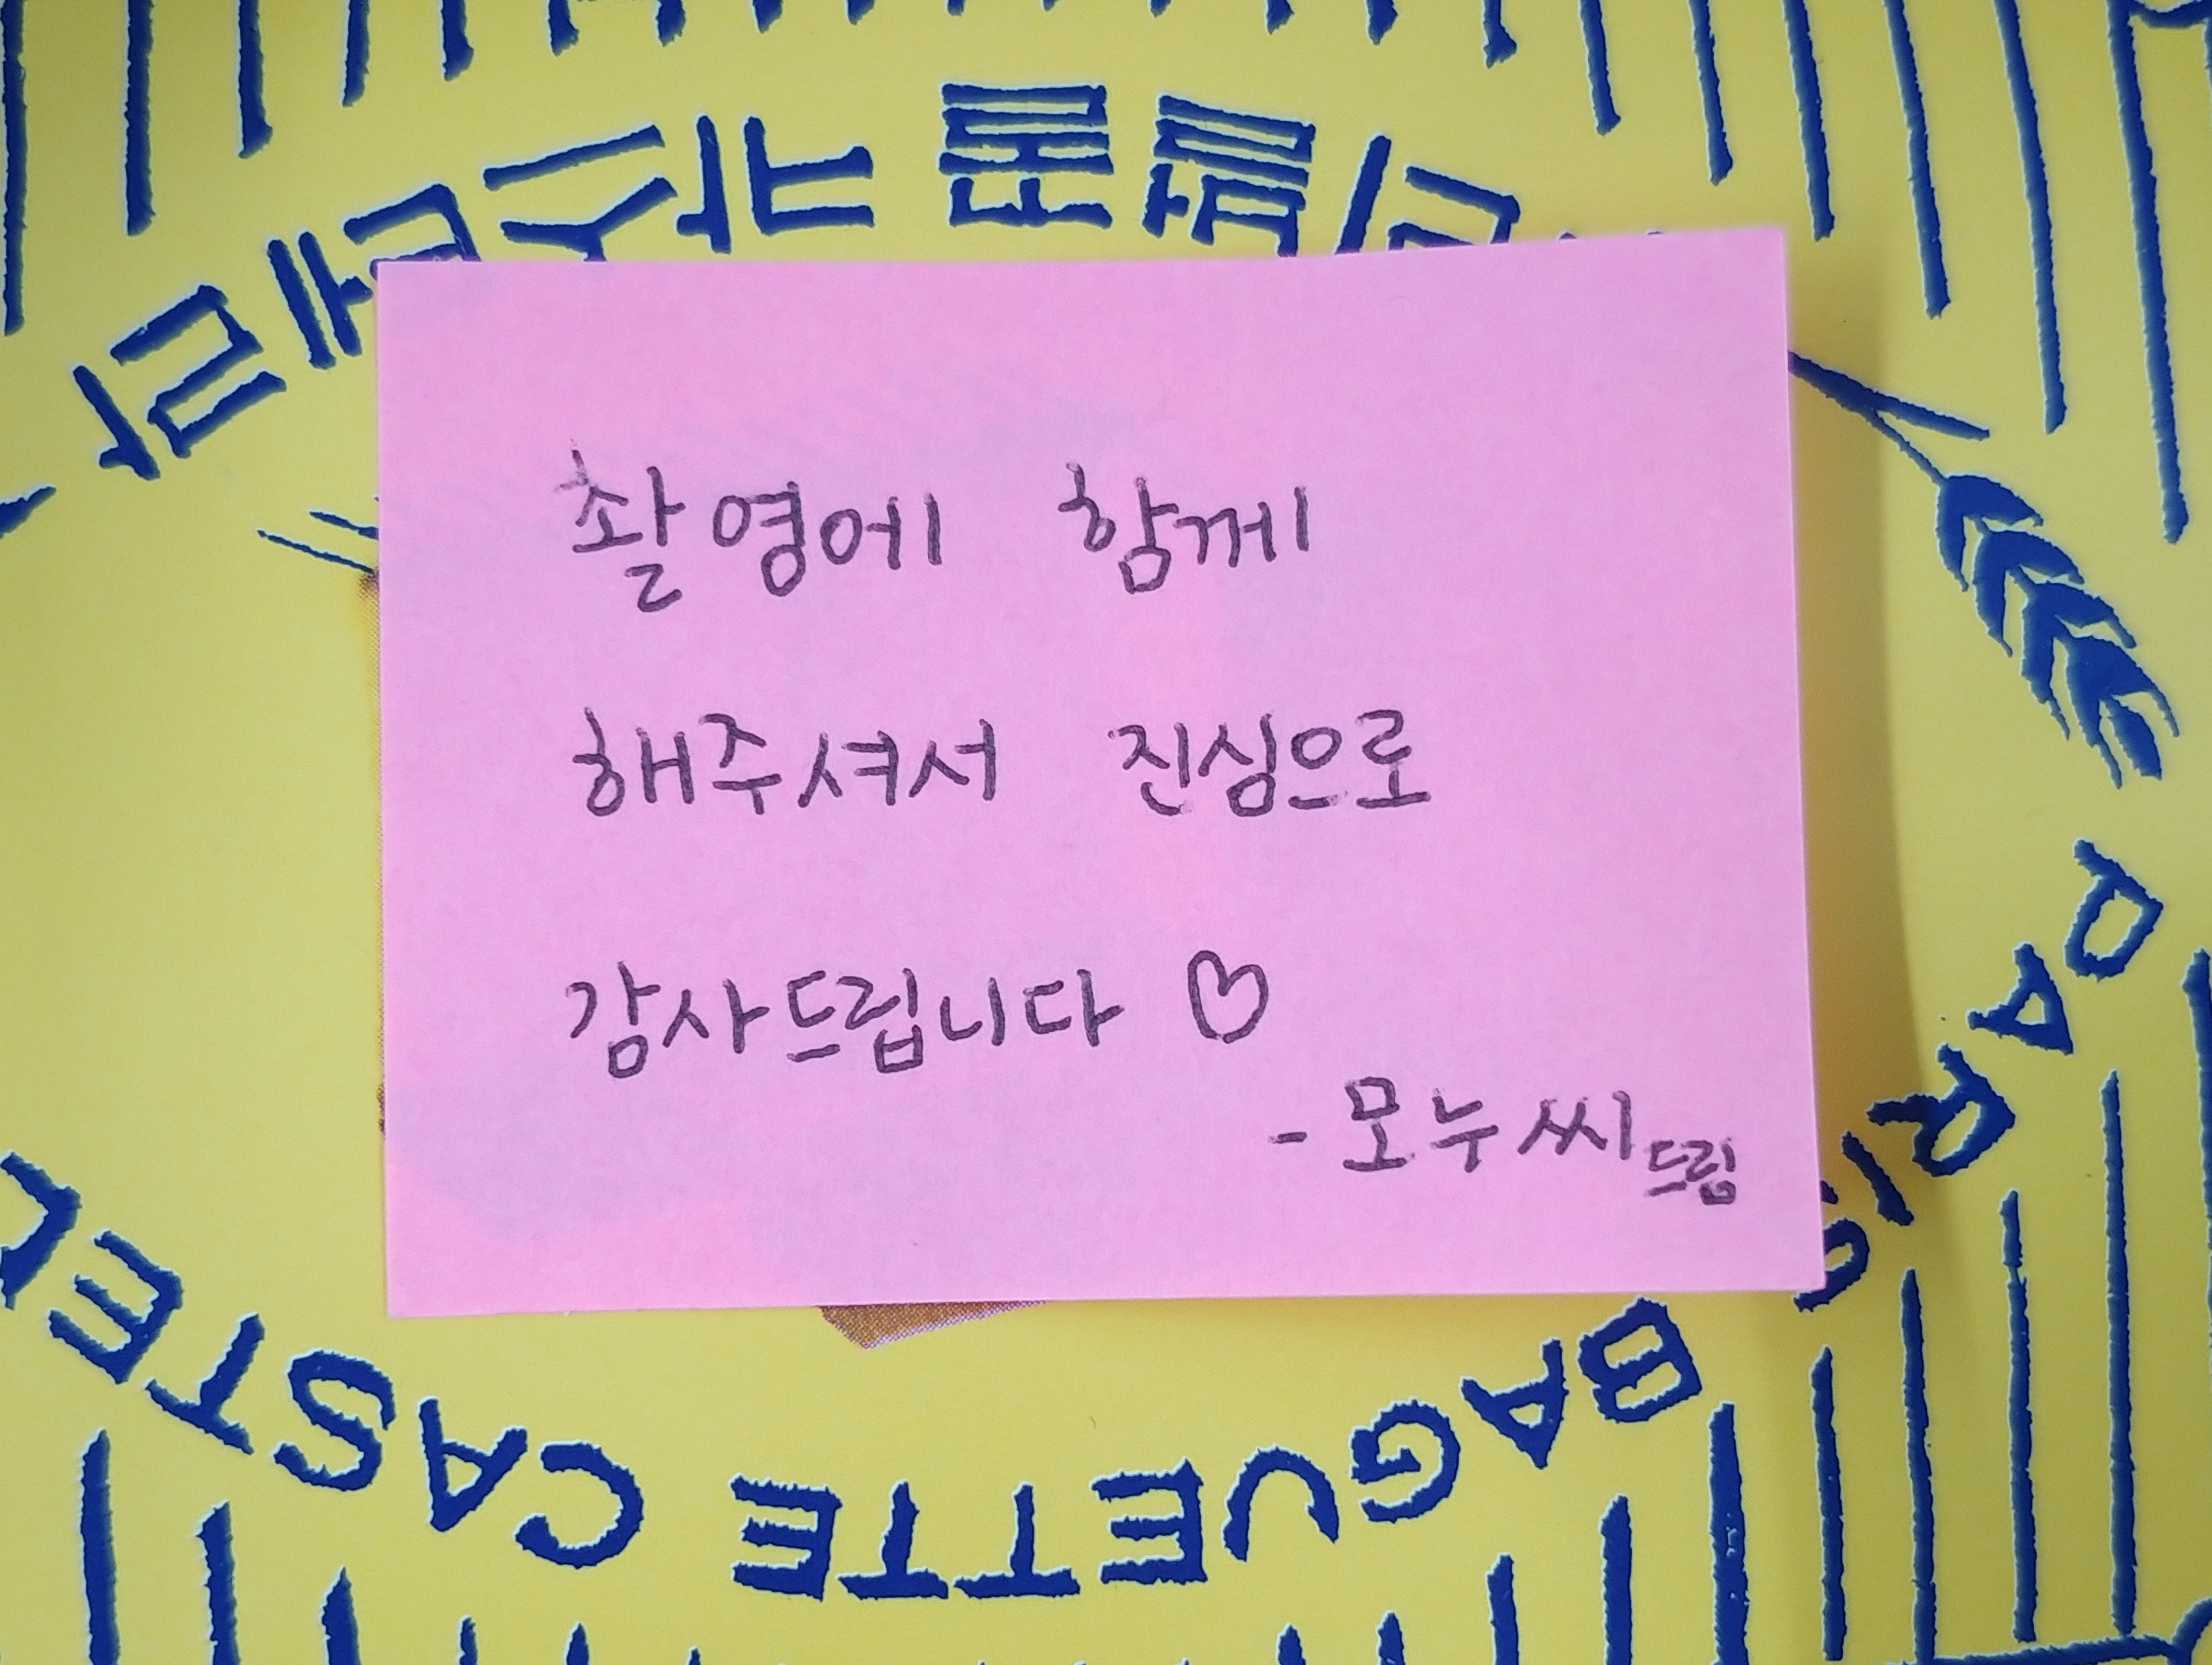 촬영에 함께
해주셔서 진심으로
감사드립니다 ♡
- 모누씨 드림
PARIS BAGUETTE CASTE